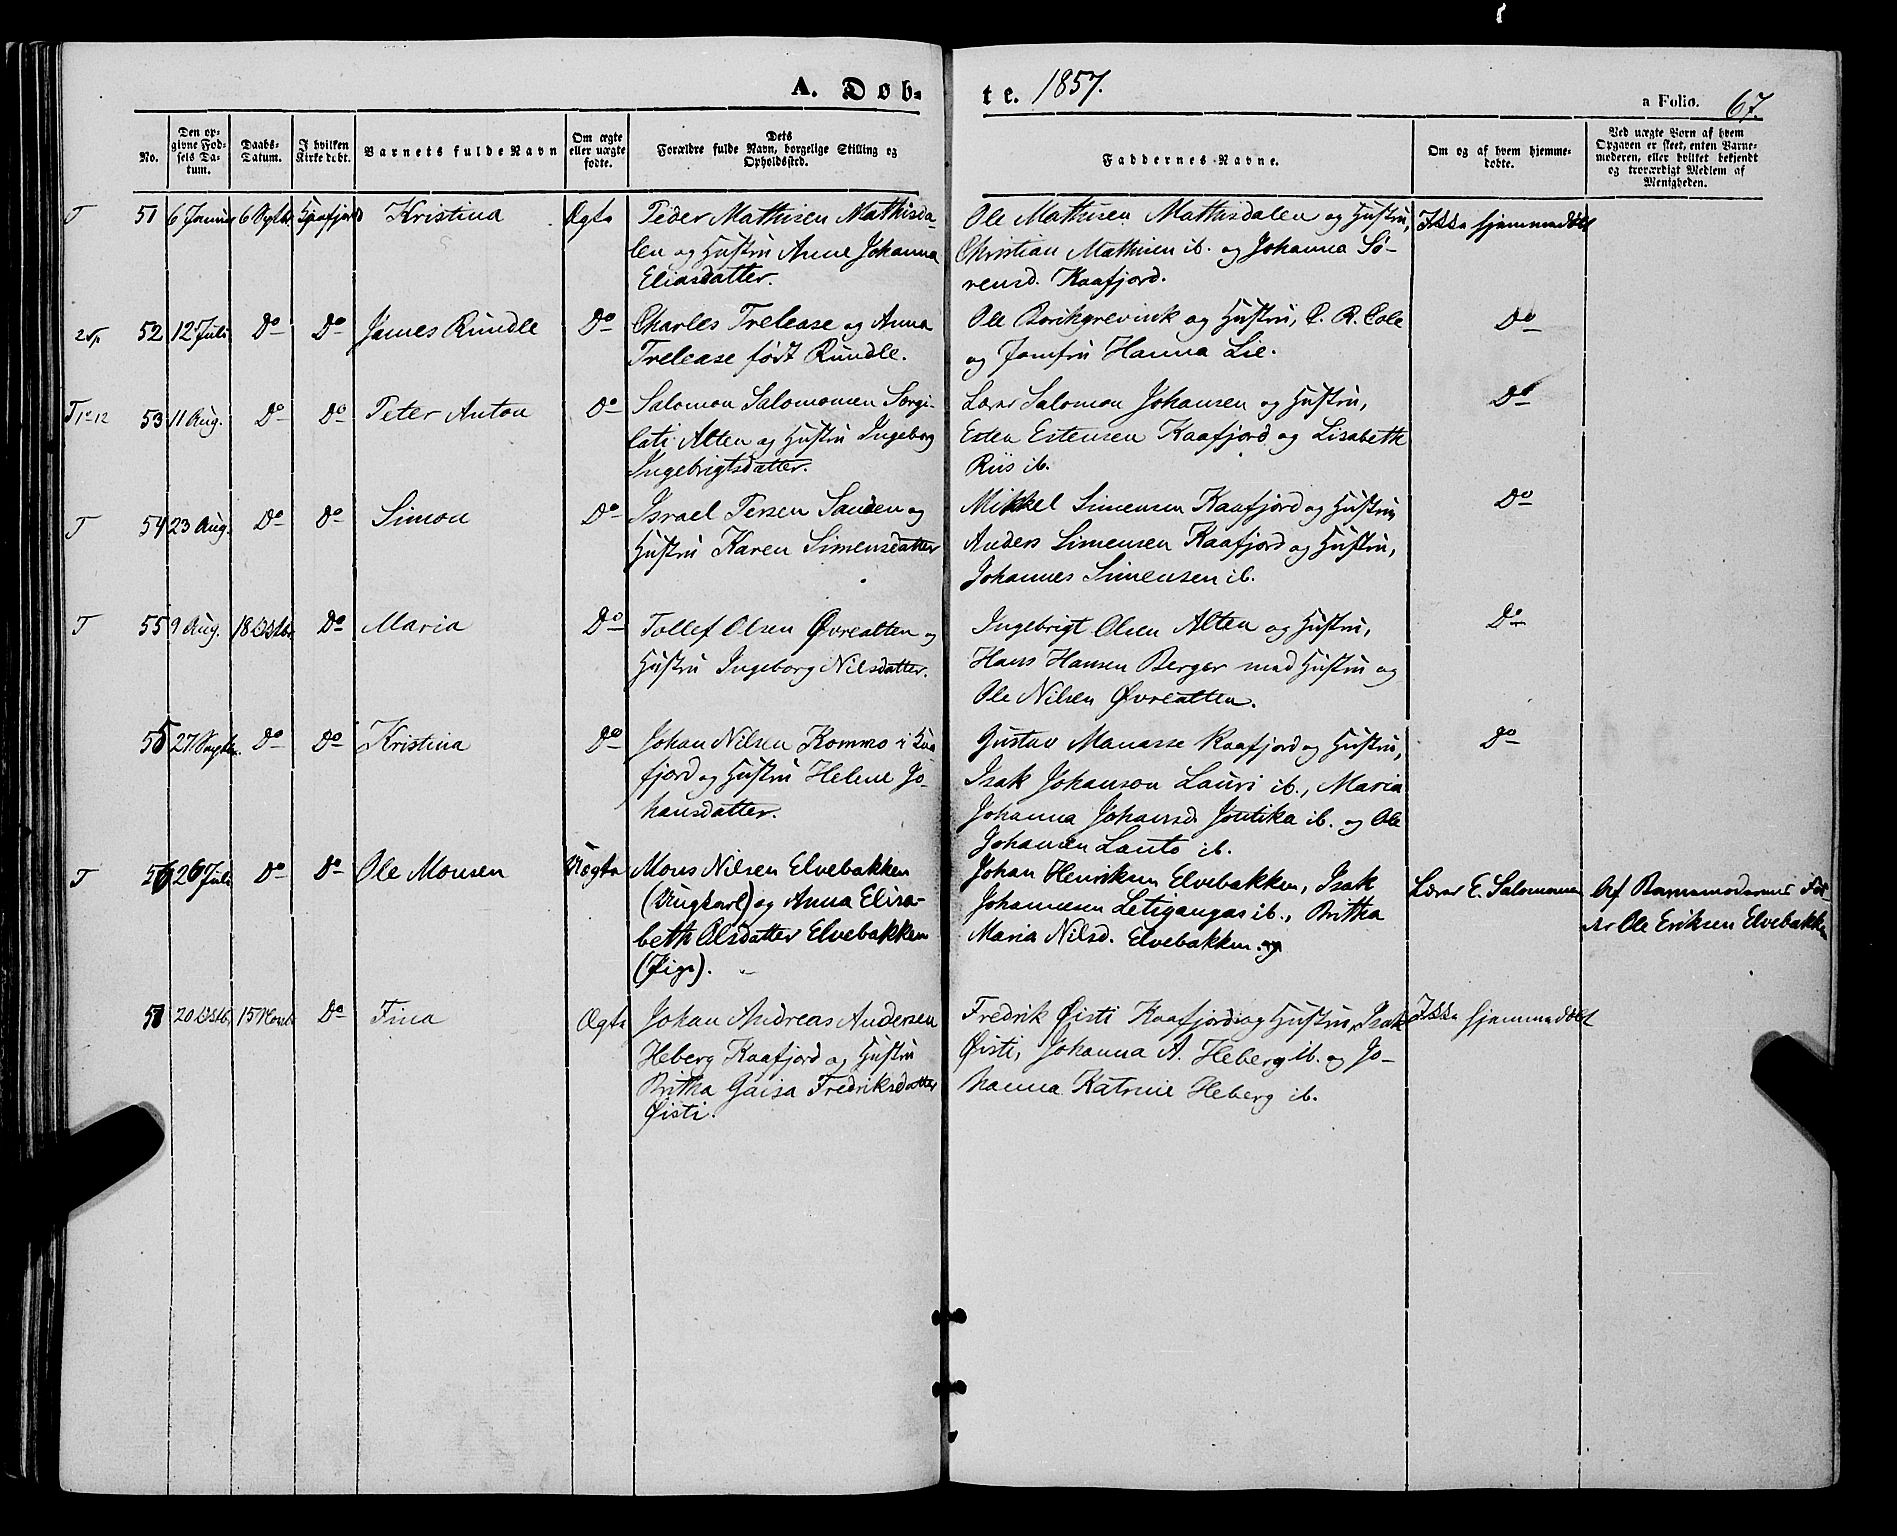 A. Døb-
te. 1857.
a Folio. 67.
No.
Den op-
givne Fød-
sels Da-
tum.
Daabs-
Datum.
I hvilken
Kirke døbt.
Barnets fulde Navn
Om ægte
eller uægte
fødte.
Dets
Forældre fulde Navn, borgelige Stilling og
Opholdssted.
Faddernes Navne.
Om og af hvem hjemme-
døbte.
Ved uægte Børn af hvem
Opgaven er skeet, enten Barne-
moderen, eller hvilket bekjendt
og troværdigt Medlem af
Menigheden.
T 51 6 Januar 6 Septbr Kaafjord Kristina Ægte Peder Mathisen Mathisda- Ole Mathisen Mathisdalen og Hustru, Ikke hjemmedøbt
len og Hustru Anne Johanna Christian Mathisen ib. og Johanna Sø-
Eliasdatter. rensd. Kaafjord.
52 12 Juli Do Do James Rundle Do Charles Trelease og Anna Ole Borchgrevink og Hustru, C. R. Cole Do
Trelease født Rundle. og Jomfru Hanna Lie.
T 53 11 Aug. Do Do Peter Anton Do Salomon Salomonsen Sorgi- Lærer Salomon Johansen og Hustru, Do
lati Alten og Hustru Ingeborg Esten Estensen Kaafjord og Lisabeth
Ingebrigtsdatter. Riis ib.
T 54 23 Aug. Do Do Simon Do Israel Persen Sanden og Mikkel Simensen Kaafjord og Hustru Do
Hustru Karen Simensdatter Anders Simensen Kaafjord og Hustru,
Johannes Simensen ib.
T 55 9 Aug. 18 Oktbr. Do Maria Do Tollef Olsen Øvrealten og Ingebrigt Olsen Alten og Hustru, Do
Hustru Ingeborg Nilsdatter. Hans Hansen Berger med Hustru og
Ole Nilsen Øvrealten.
55 27 Septbr. Do Do Kristina Do Johan Nilsen Kommo i Kaa Gustav Manasse Kaafjord og Hustru, Do
fjord og Hustru Helene Jo- Isak Johanson Lauri ib., Maria
hansdatter. Johanna Johansd. Joutika ib. og Ole
Johansen Lauto ib.
T 56 26 Juli Do Do Ole Monsen Uægte Mons Nilsen Elvebakken Johan Henriksen Elvebakken, Isak Lærer E. Salomonsen Af Barnemoderens Fa-
(Ungkarl) og Anna Elisa- Johannesen Letigangas ib., Britha der Ole Eriksen Elvebakken
beth Olsdatter Elvebakken Maria Nilsd. Elvebakken. og
(Pige).
57 20 Oktb. 15 Novbr Do Fina Ægte Johan Andreas Andersen Fredrik Øisti Kaafjord og Hustru, Isak Ikke hjemmedøbt
Heberg Kaafjord og Hustru Øisti, Johanna A. Heberg ib. og Jo-
Britha Gaisa Fredriksdatter hanna Katrine Heberg ib.
Øisti.